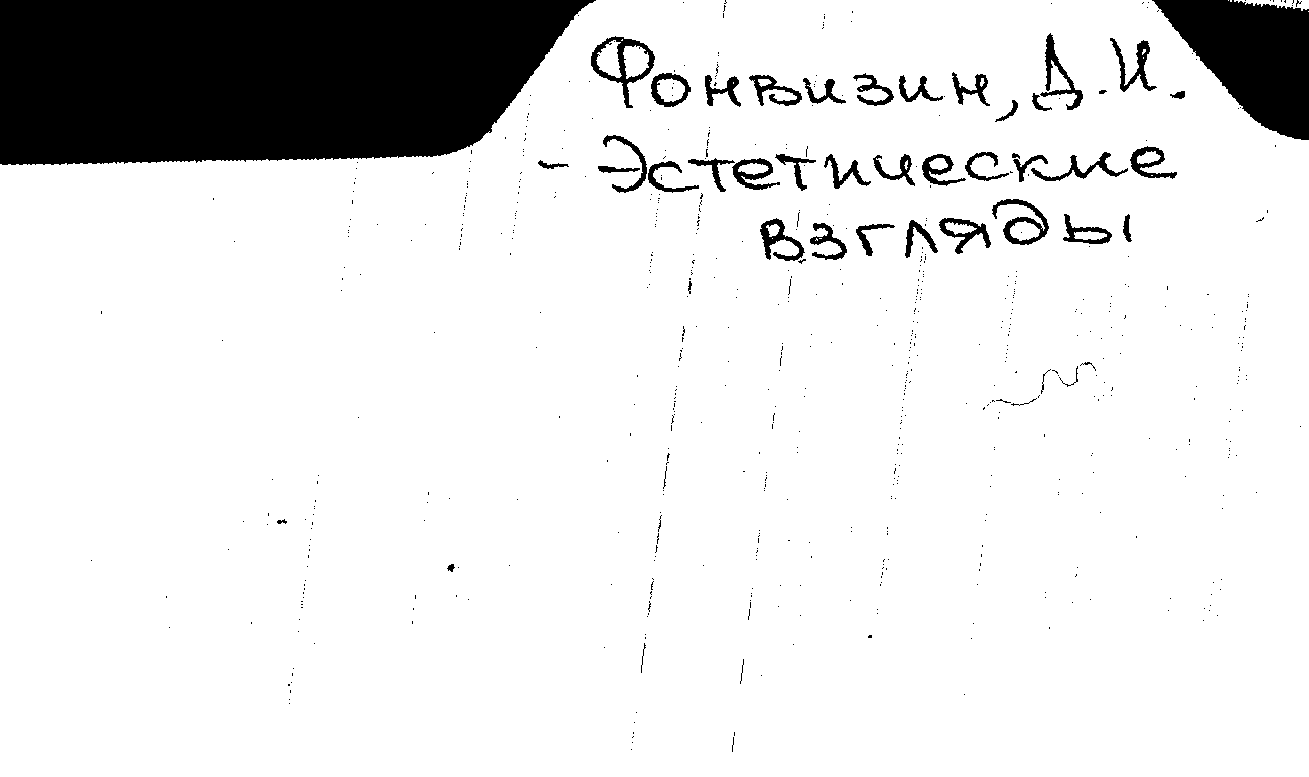 Фонвизин, Д.И.
- Эстетические
взгляды